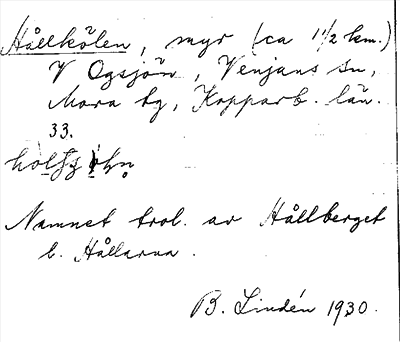 Hållkölen, myr (ca 1 1/2 km.)
V Ogsjön, Venjans sn,
Mora tg, Kopparb. län.
33.
Namnet trol. av Hållberget
l. Hållarna.
B. Lindén 1930.